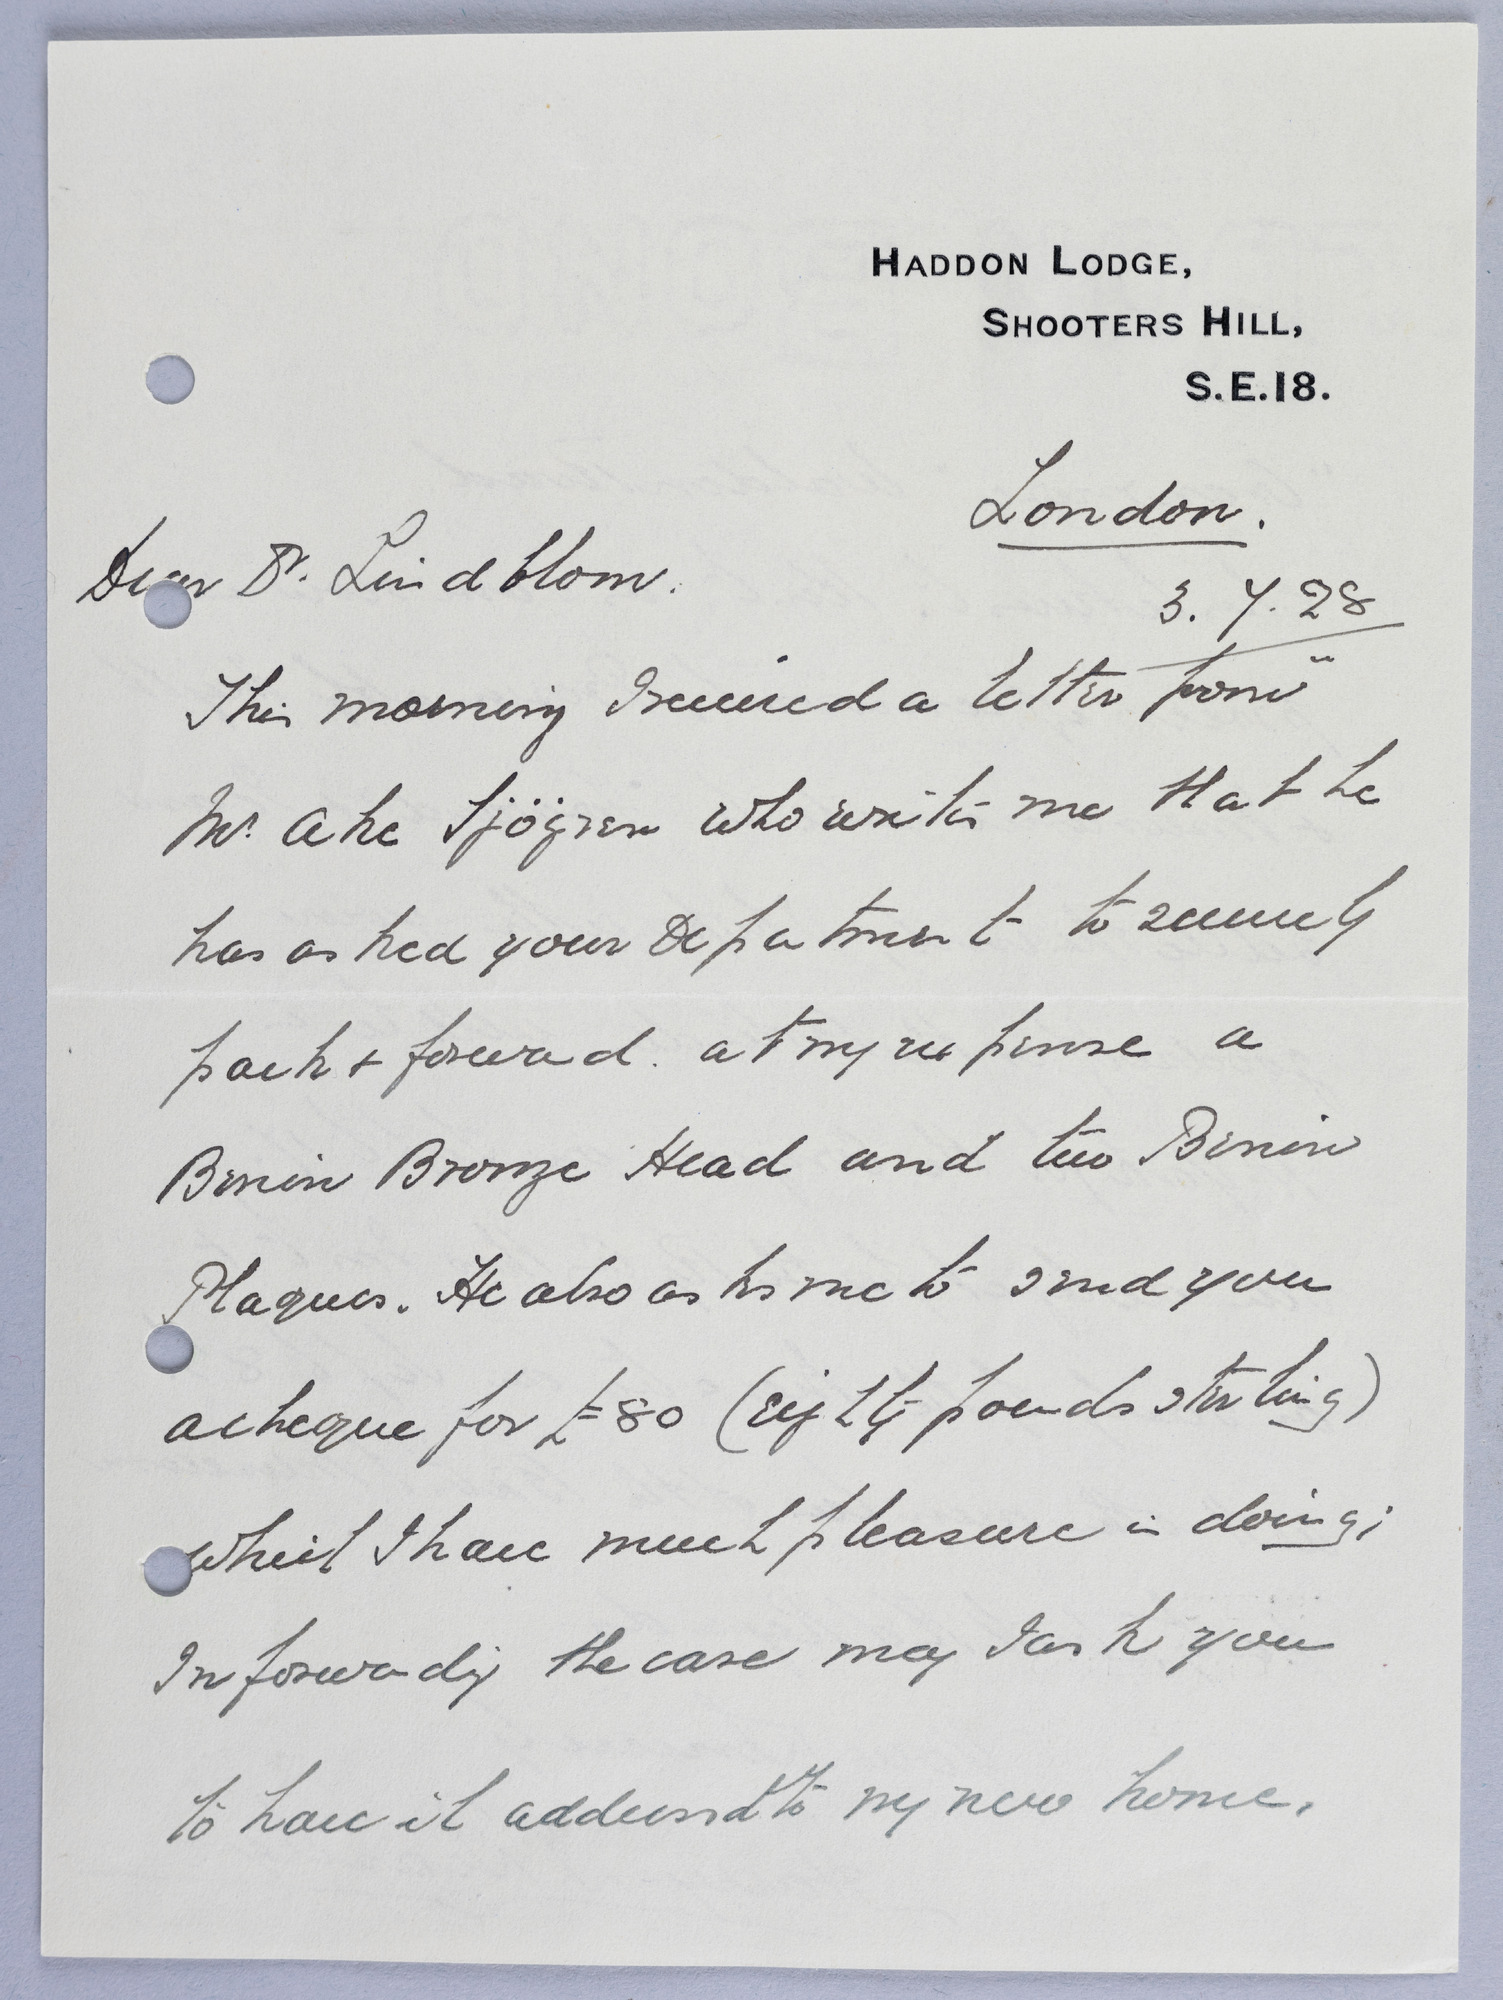 HADDON LODGE,
SHOOTERS HILL,
S.E.18.
London.
3. 7. 28
Dear Dr. Lindblom.
This morning I received a letter from
Mr. Ake Sjögren who writes me that he
has asked your Department to securely
pack & forward. at my expense a
Benin Bronze Head and two Benin
Plaques. He also asks me to send you
a cheque for £80 (eighty pounds sterling)
which I have much pleasure in doing;
In forwarding the case may I ask you
to have it addressed to my new home.